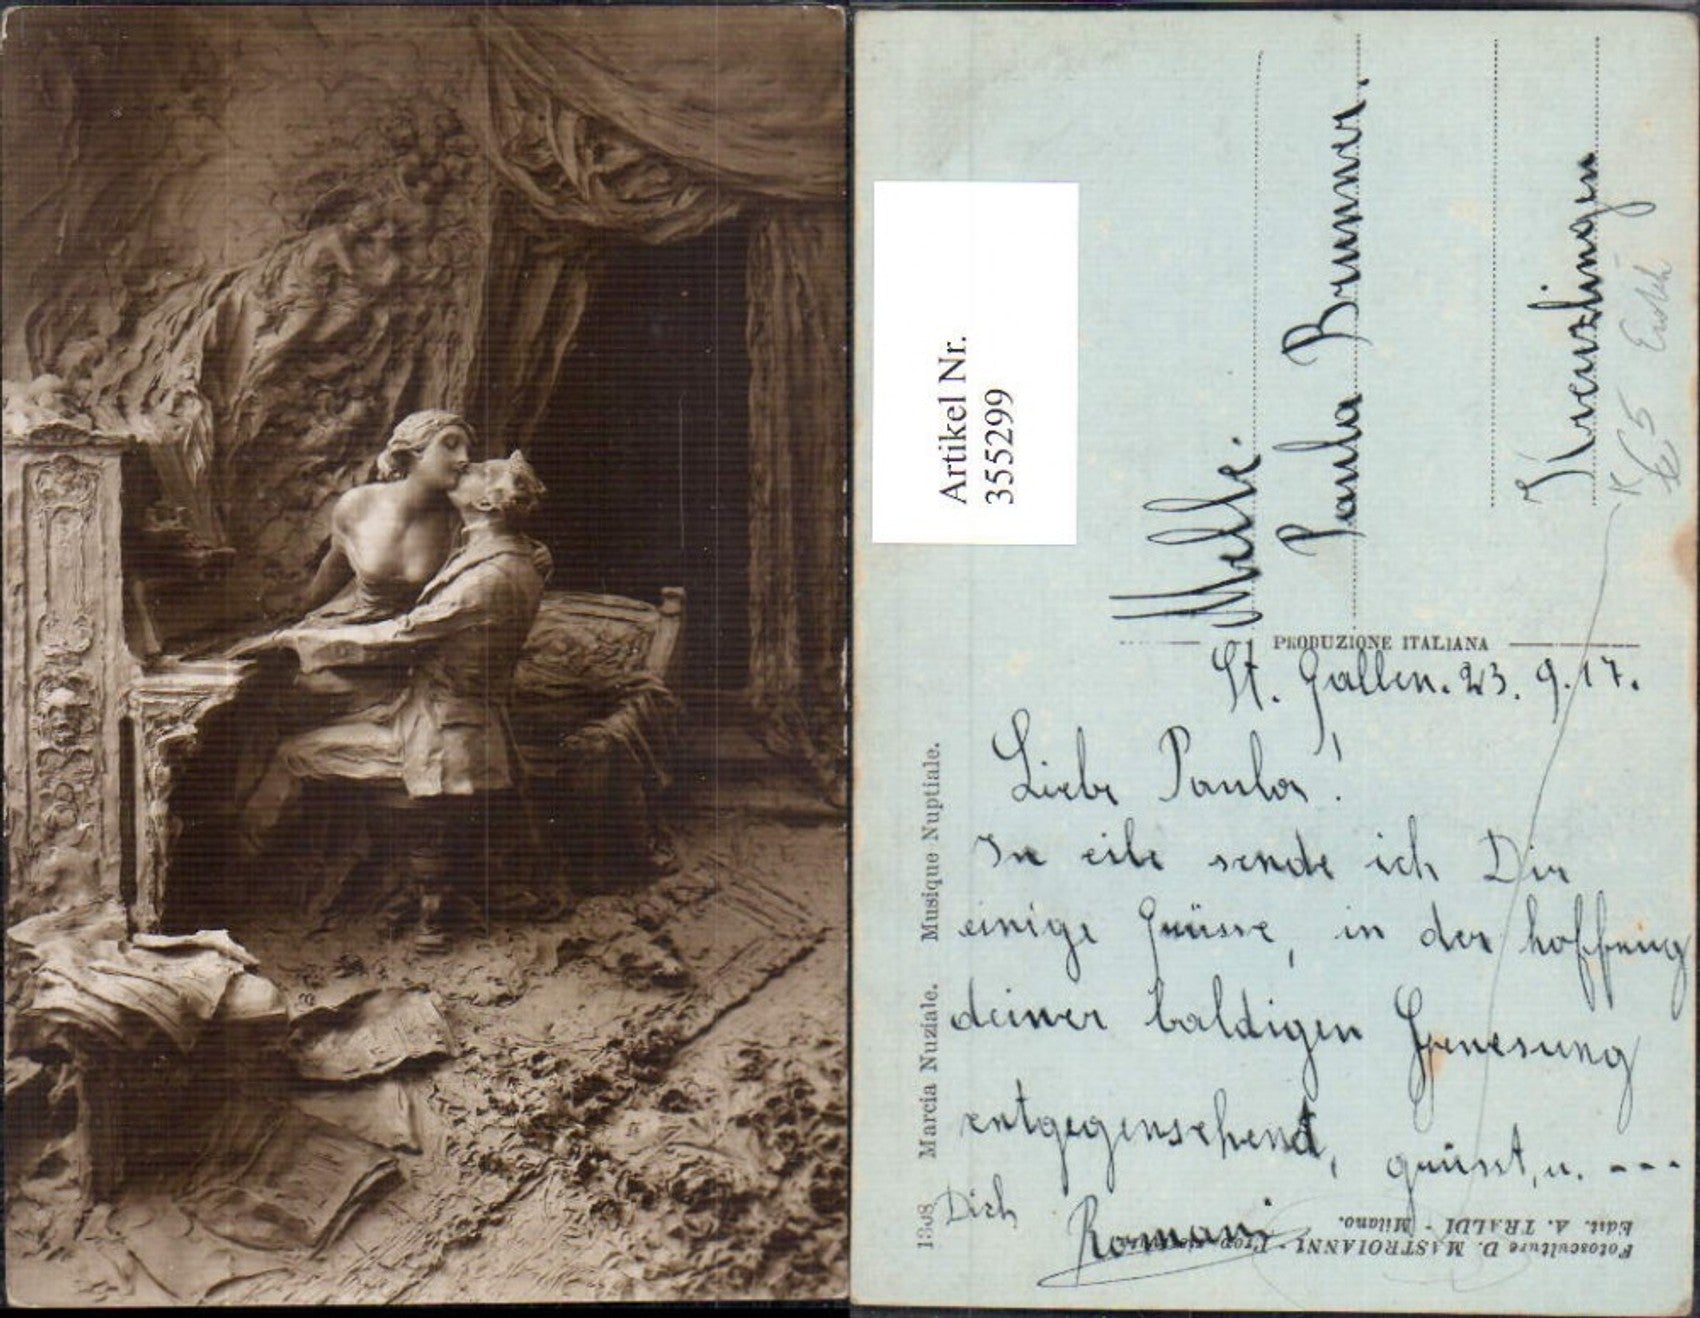 Artikel Nr.
3555299
Melle.
Paula Brunner.
Kreuzlingen
PRODUZIONE ITALIANA
St. Gallen. 23. 9. 17.
Liebe Paula!
In eile sende ich Dir
einige Grüsse, in der hoffnung
deiner baldigen Genesung
entgegensehend, grüsst, u. ---
Dich
Romani
1308 Marcia Nuziale. Musique Nuptiale.
Fotosculture D. MASTROIANNI - Prop.
Edit. A. TRALDI - Milano.